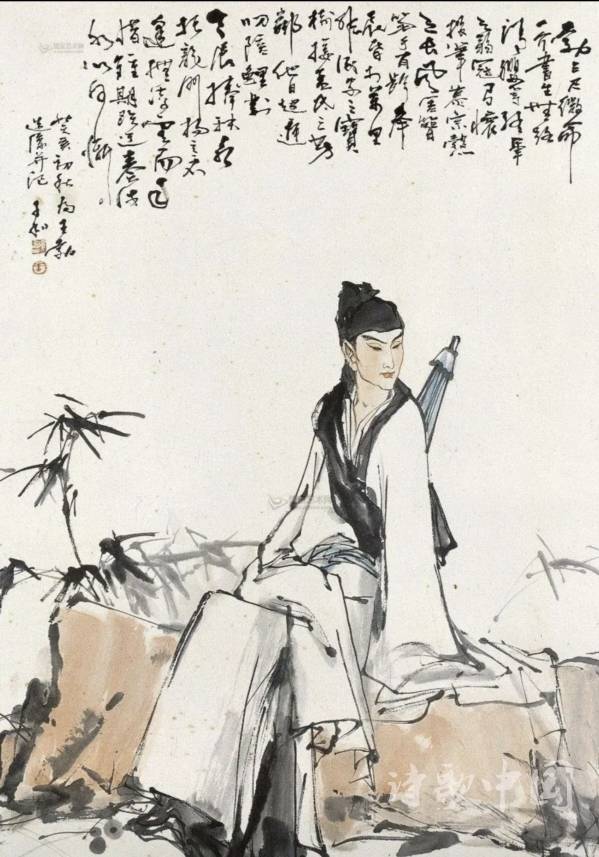 勃三尺微命
一介書生無路
請纓等終軍
之弱冠有懷
投筆慕宗慤
之長風舍簪
笏于百齡奉
晨昏于萬里
非謝家之寶
樹接孟氏之芳
鄰他日趨庭
叨陪鯉對
今晨捧袂喜
托龍門楊意不
逢撫凌雲而自
惜鍾期既遇奏流
水以何慚
癸亥初秋為王勃
造像并記
诗歌中国